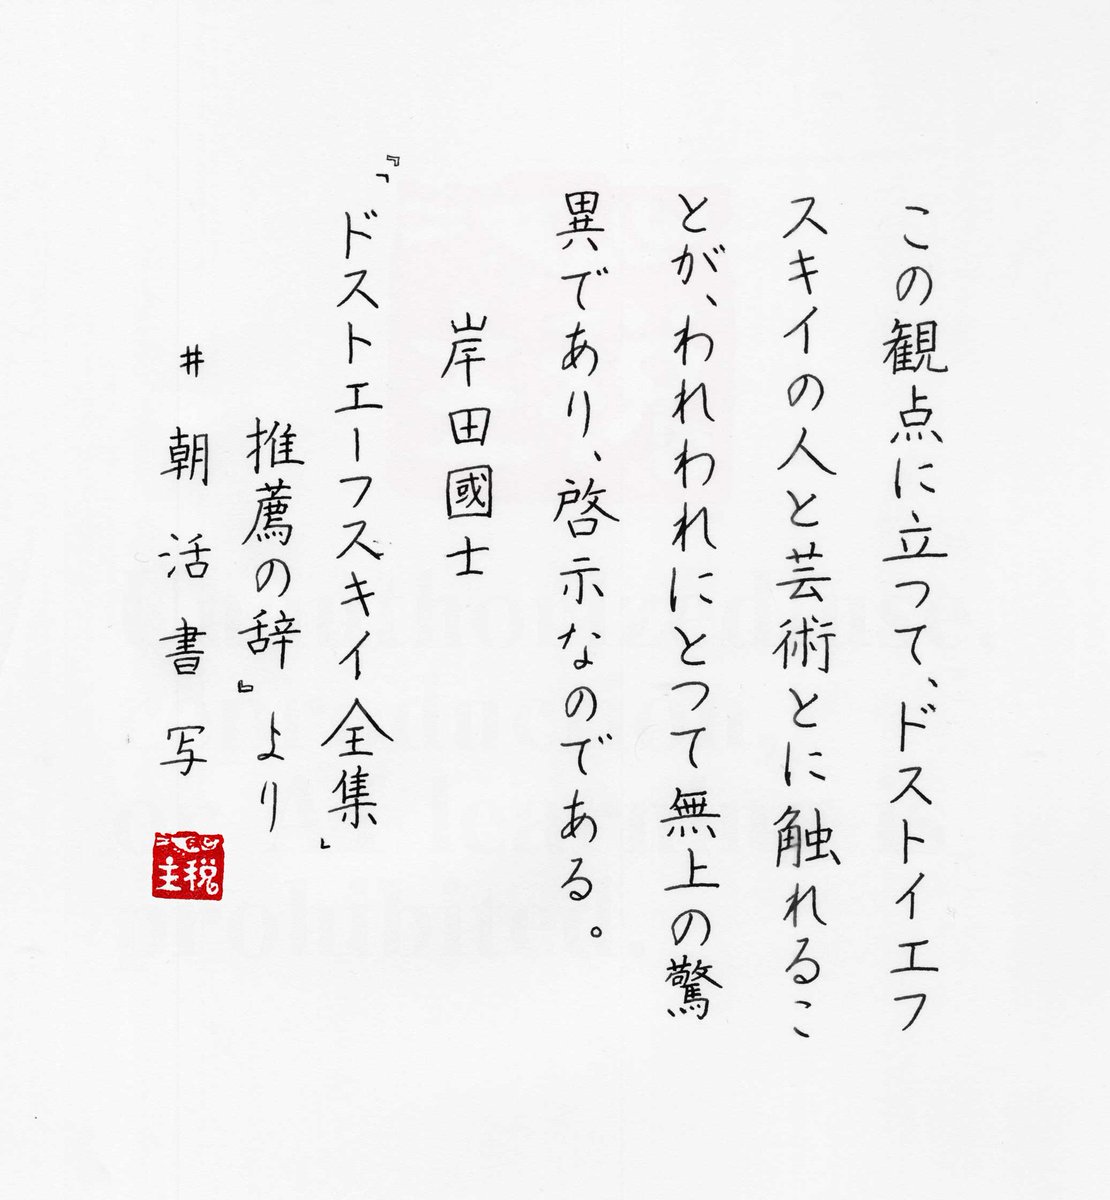 この観点に立つて、ドストイエフ
スキイの人と芸術とに触れるこ
とが、われわれにとつて無上の驚
異であり、啓示なのである。
岸田國士
『「ドストエーフスキイ全集」
推薦の辞』より
#朝活書写
主税